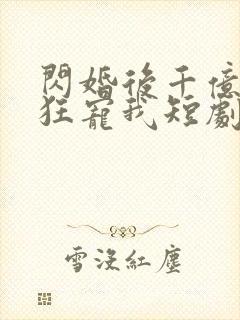 閃婚後千億
狂寵我短劇
雪沒紅塵